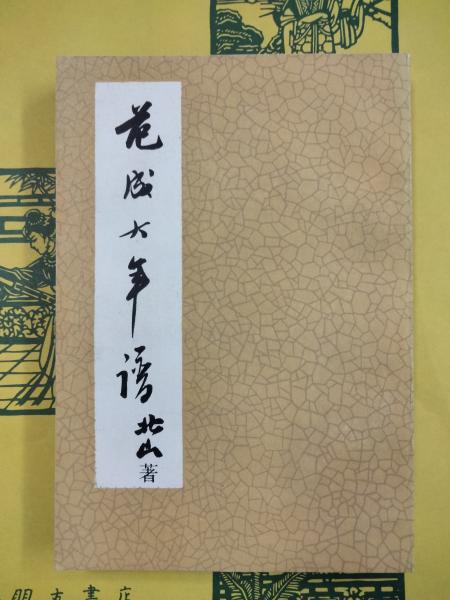 范成大年谱
北山著
古書店